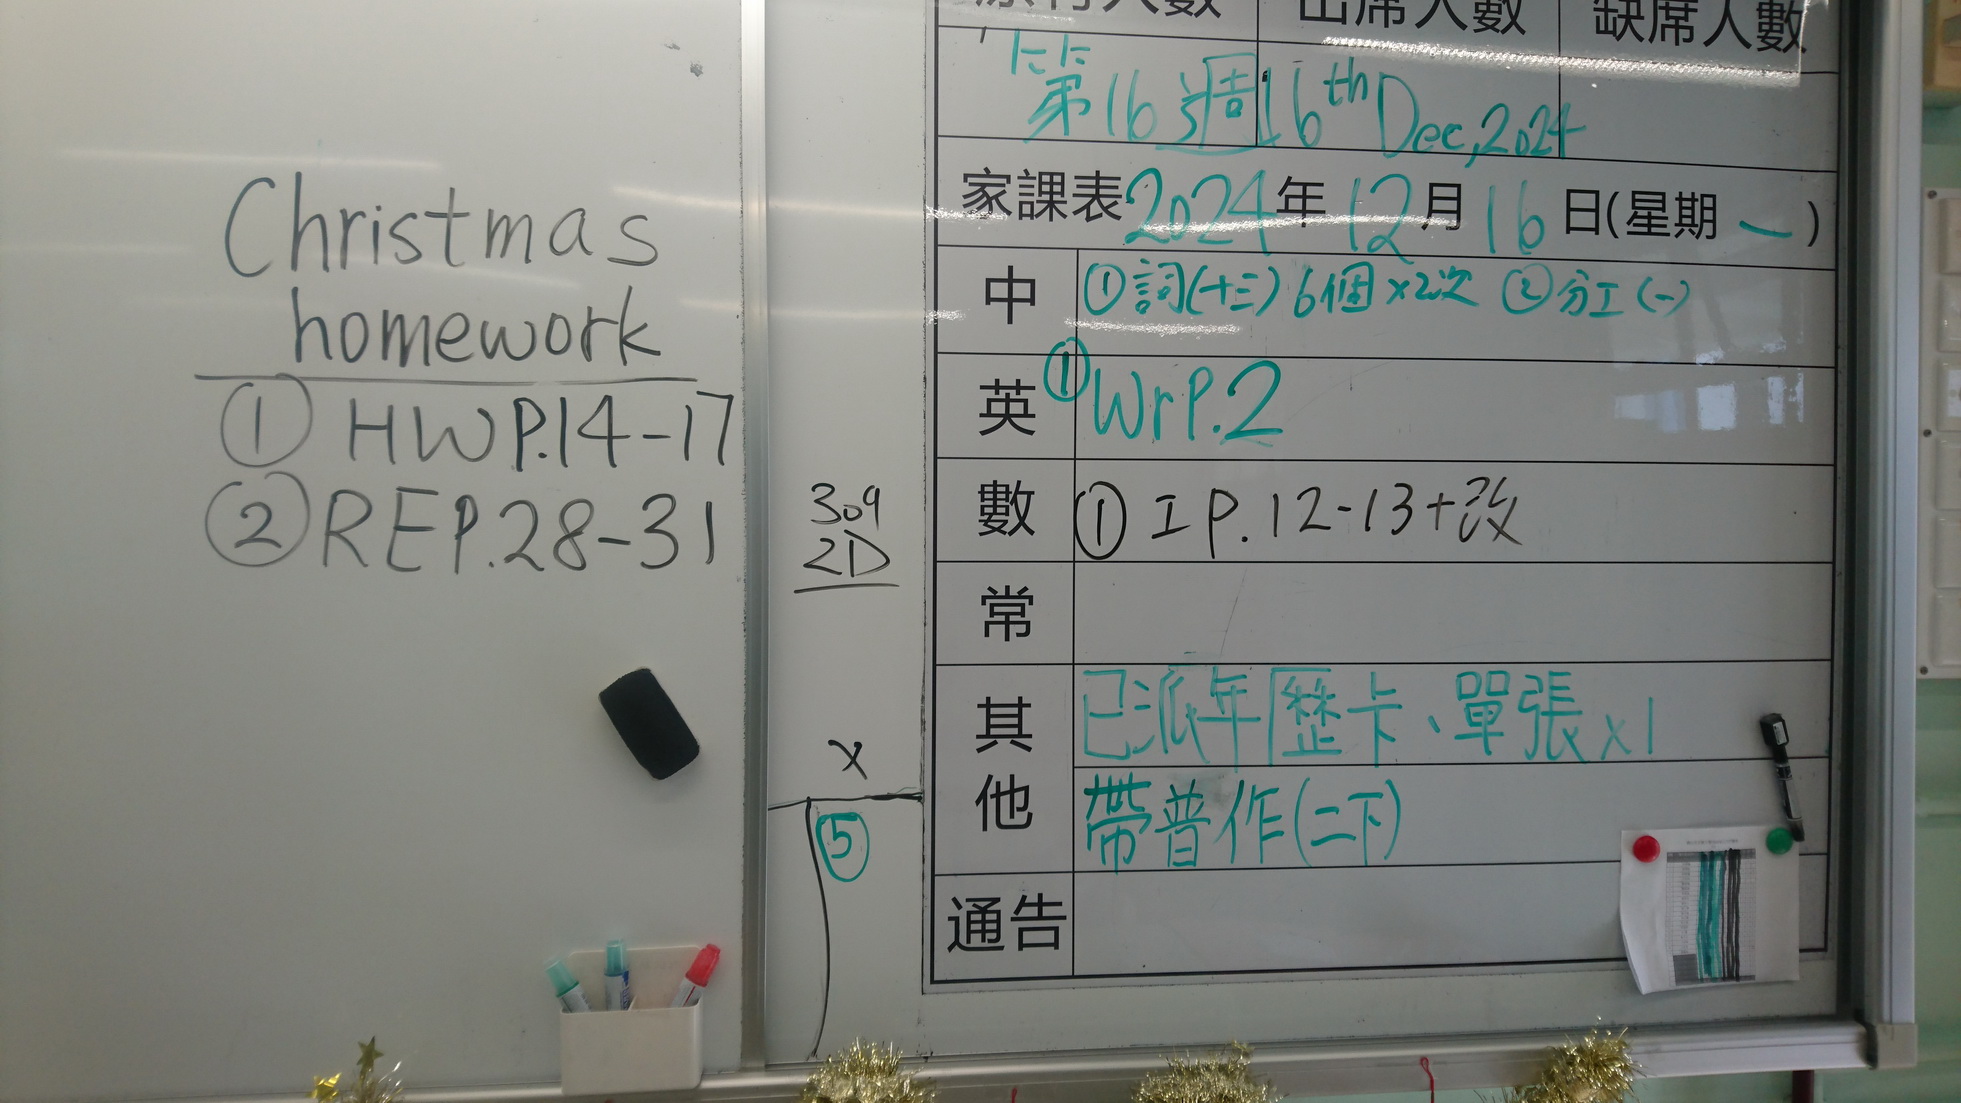 Christmas
homework
① HW P.14-17
② RE P.28-31
309
2D
x
⑤
出席人數 缺席人數
第16週 16th Dec, 2024
家課表 2024年 12月 16日(星期一)
中 ①詞(十三)6個x2次 ②分工(一)
英 ① Wr P.2
數 ① 工 P.12-13+改
常
其他 已派年歷卡、單張x1
帶普作(二下)
通告